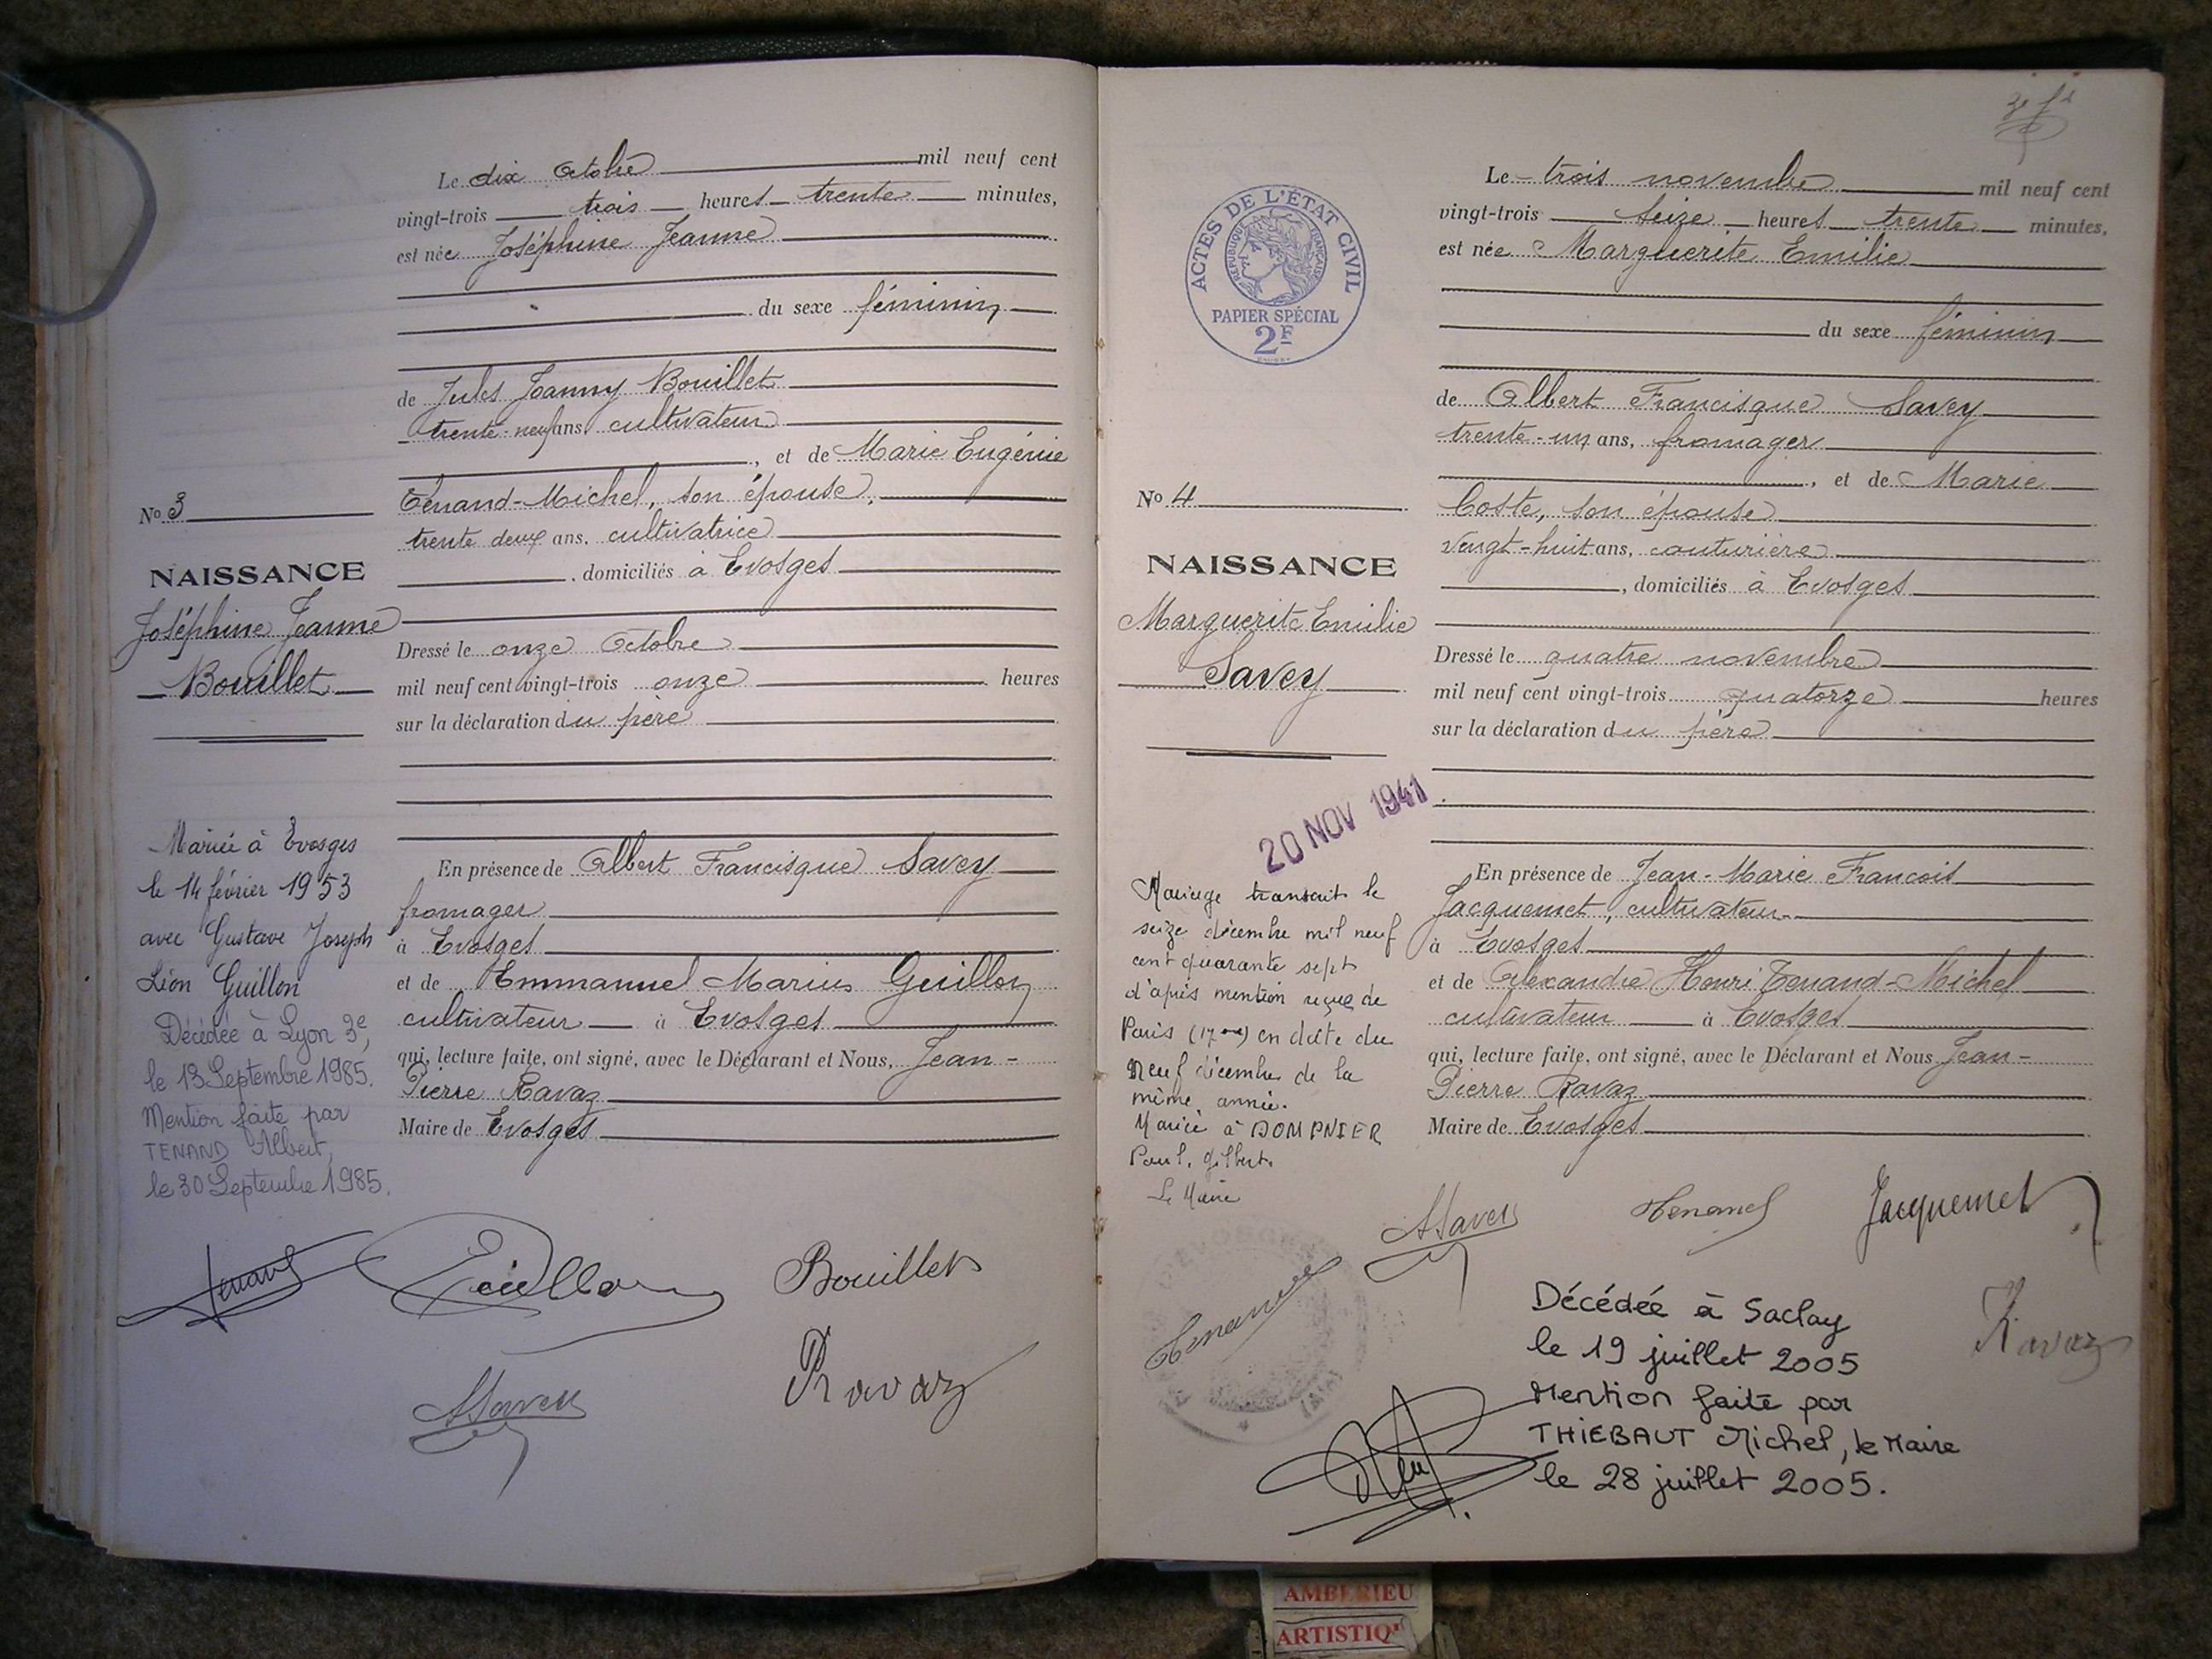 Le dix Octobre mil neuf cent
vingt-trois trois heures trente minutes,
est née Joséphine Jeanne
du sexe féminin
de Jules Joanny Bouillet
trente-neuf ans, cultivateur
, et de Marie Eugénie
Tenand-Michel, son épouse,
trente deux ans, cultivatrice
, domiciliés à Evosges
No 3
NAISSANCE
Joséphine Jeanne
Bouillet
Dressé le onze Octobre
mil neuf cent vingt-trois onze heures
sur la déclaration du père
En présence de Albert Francisque Savey
fromager
à Evosges
et de Emmanuel Marius Guillon
cultivateur à Evosges
qui, lecture faite, ont signé, avec le Déclarant et Nous, Jean-
Pierre Ravaz
Maire de Evosges
Mariée à Evosges
le 14 février 1953
avec Gustave Joseph
Léon Guillon
Décédée à Lyon 3e,
le 13 Septembre 1985.
Mention faite par
TENAND Albert,
le 30 Septembre 1985.
Tenand
Guillon
Bouillet
ASavey
Ravaz
ACTES DE L'ÉTAT CIVIL
RÉPUBLIQUE FRANÇAISE
PAPIER SPÉCIAL
2F
Le trois novembre mil neuf cent
vingt-trois seize heures trente minutes,
est née Marguerite Emilie
du sexe féminin
de Albert Francisque Savey
trente-un ans, fromager
, et de Marie
Coste, son épouse
vingt-huit ans, couturière
, domiciliés à Evosges
No 4
NAISSANCE
Marguerite Emilie
Savey
Dressé le quatre novembre
mil neuf cent vingt-trois quatorze heures
sur la déclaration du père
20 NOV 1941
En présence de Jean-Marie François
Jacquemet, cultivateur
à Evosges
et de Alexandre Henri Tenand-Michel
cultivateur à Evosges
qui, lecture faite, ont signé, avec le Déclarant et Nous Jean-
Pierre Ravaz
Maire de Evosges
Mariage transcrit le
seize décembre mil neuf
cent quarante sept
d'après mention reçue de
Paris (17me) en date du
neuf décembre de la
même année.
Mariée à DOMPNIER
Paul, Gilbert.
Le Maire
ASavey
Tenand
Jacquemet
Tenand
Ravaz
Décédée à Saclay
le 19 juillet 2005
Mention faite par
THIEBAUT Michel, le Maire
le 28 juillet 2005.
AMBERIEU
ARTISTIQ